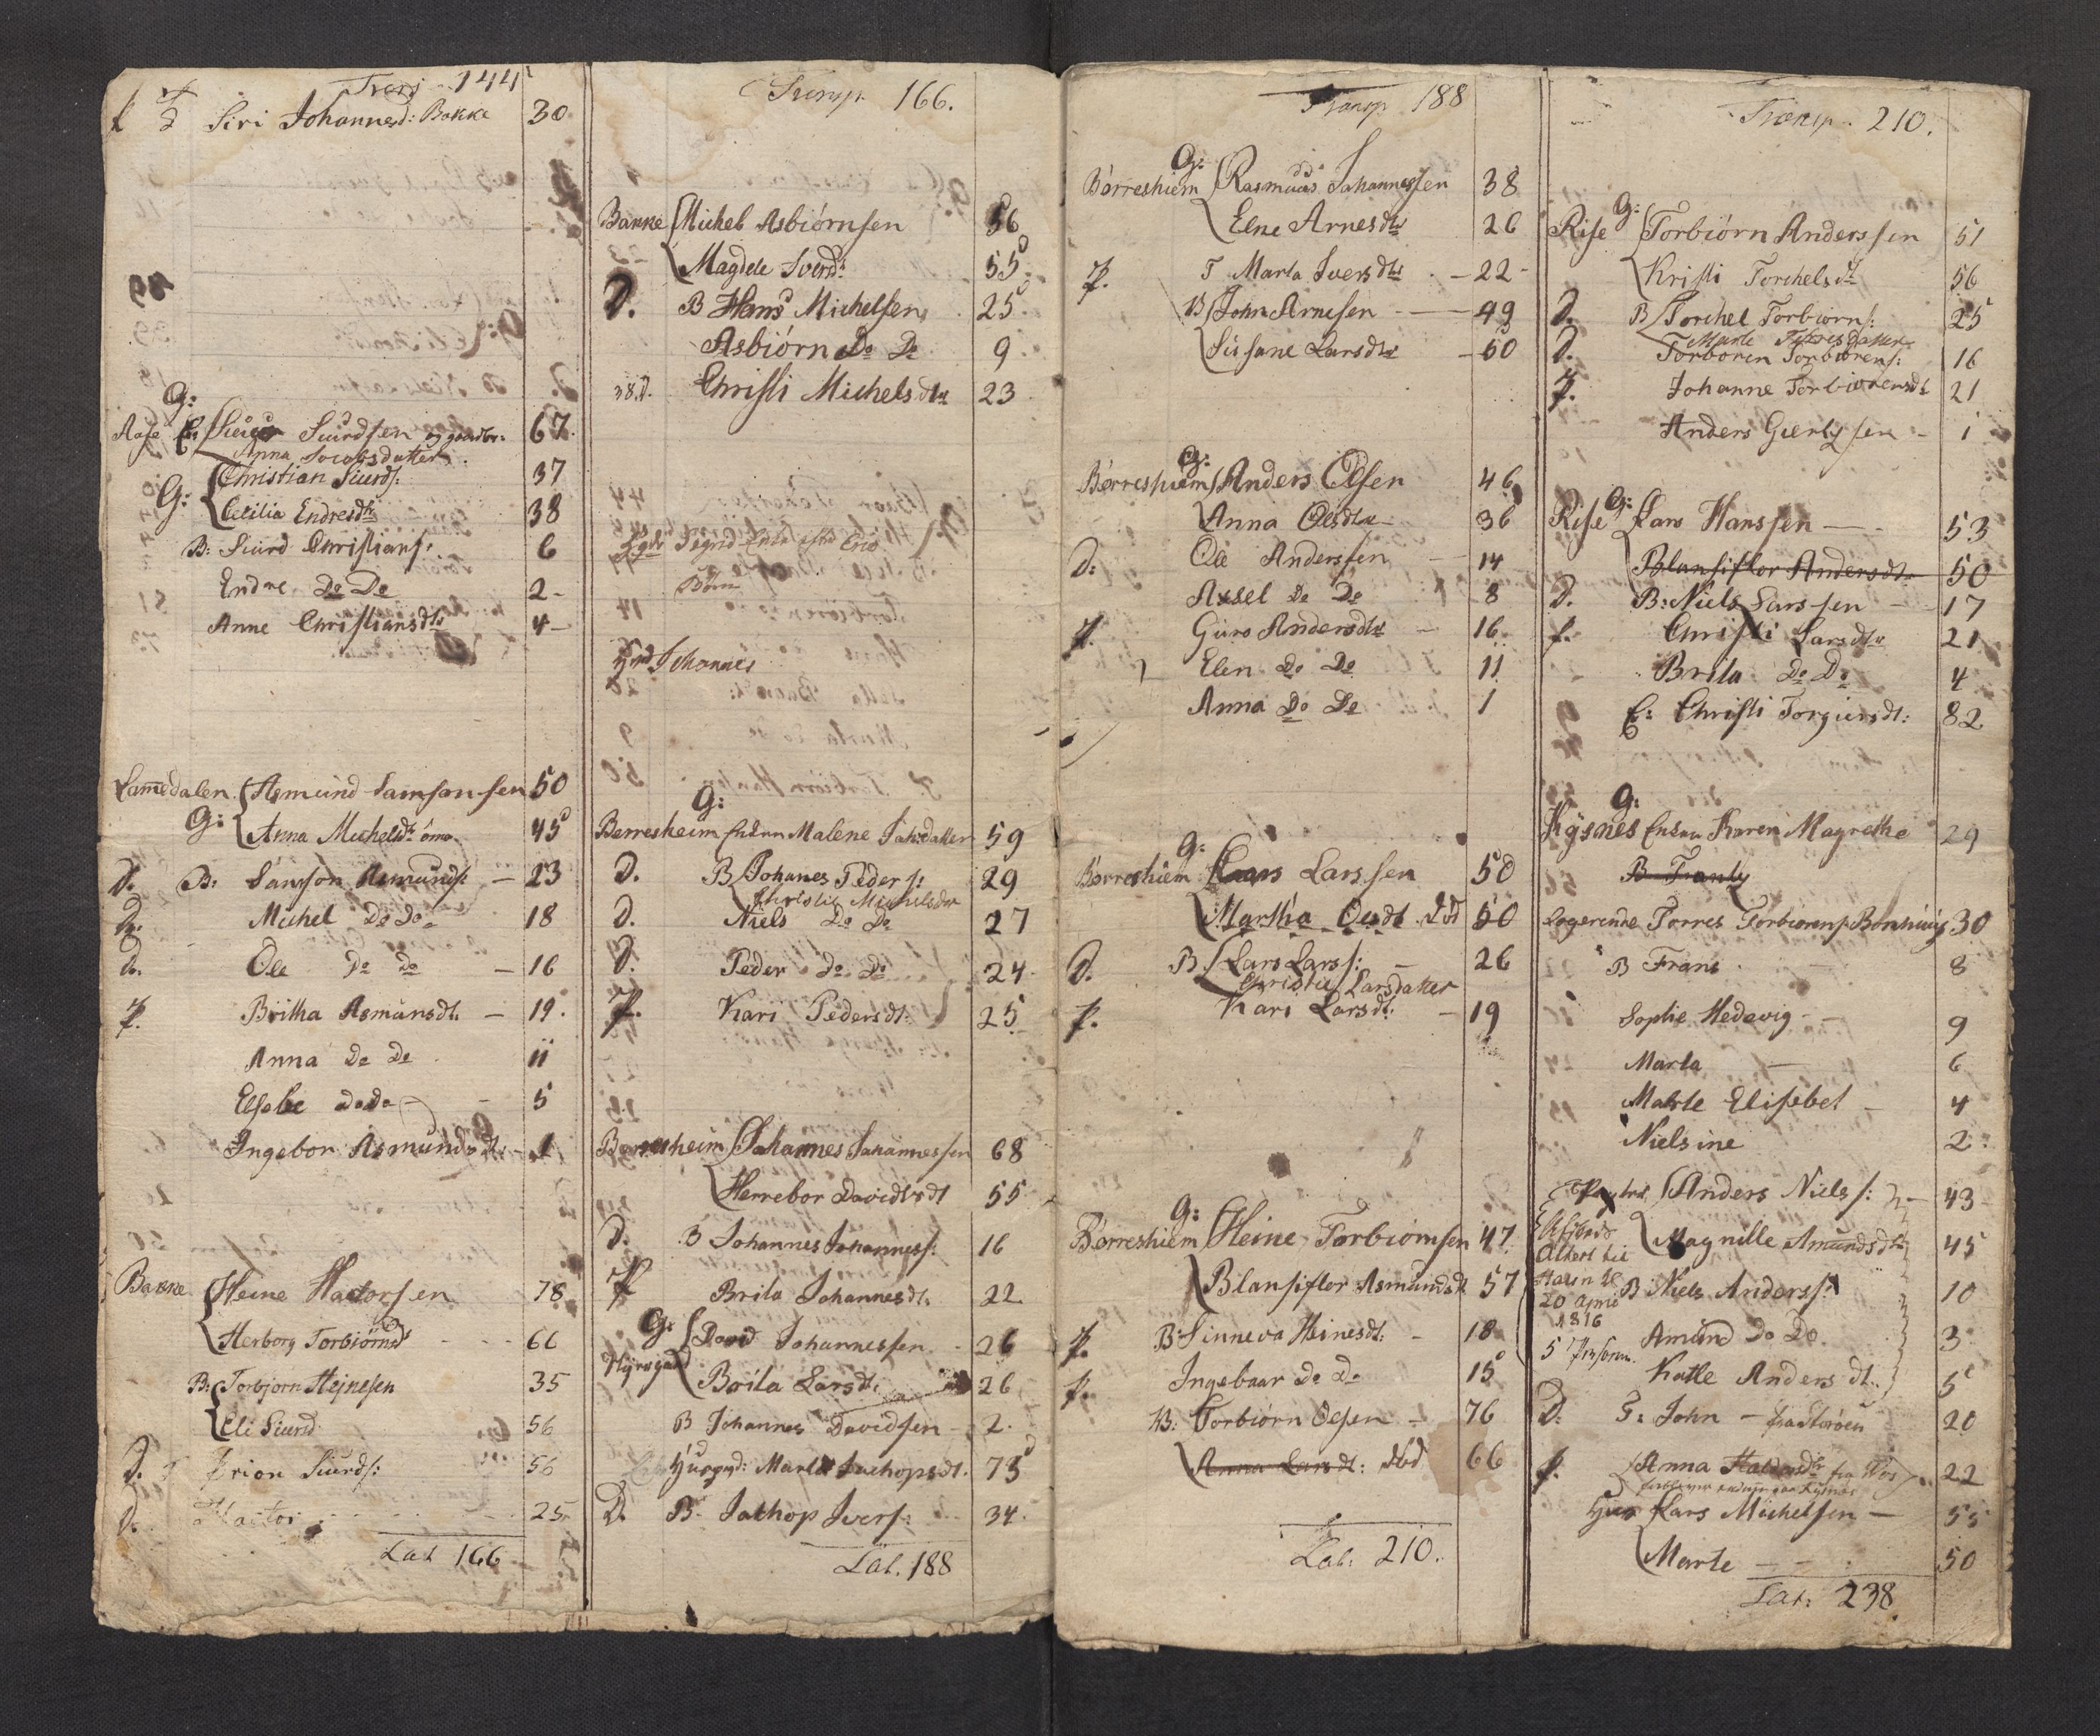 Trans 144
f T Siri Johannesd: Bakke 30
G:
Aase E: Siurdsen 67
Anna Jocobsdatter
G: Christian Siurds: 37
Cicilia Endresdtr 38
B: Siurd Christians: 6
Endre Do Do 2
Anne Christiansdtr 4
Lamedalen Asmund Samsonsen 50
G: Anna Michelsdtr 45
D. B: Samson Asmunds: 23
D. Michel Do Do 18
D. Ole Do Do 16
f. Britha Asmunsdt. 19.
Anna Do Do 11
Elsebe Do Do 5
Ingebor Asmundsdt. 1
Bakke Heine Hactorsen 78
Herborg Torbiörnsd 66
B: Torbjorn Hejnesen 35
Eli Siursd 56
D. T Brion Siurds: 56
D. Hactor 25
Lat 166
Transp. 166.
Bakke Michel Asbiörnsen 56
Magdele Iversd: 55
D. B Hans Michelsen 25
Asbiörn Do Do 9
38.D. Christi Michelsdtr 23
Börn
Johannes
G:
Berresheim Enken Malene Johsdatter 59
D. B Johanes Peders: 29
Christie Michelsdtr
D. Niels Do Do 27
D. Peder Do Do 24
f. Kari Pedersdt: 25
Berresheim Johannes Johannessen 68
Herrebor Davidsdt 55
D. B Johannes Johanness: 16
f Brita Johannesdt. 22
G: David Johannessen 26
Brita Larsdt. 26
B Johannes Davidsen 2.
Huusqvd: Marta Jachopsdt. 75
D. B. Jachop Ivers: 34.
Lat. 188
Transp 188
G:
Börreshiem Rasmus Johannessen 38
Elne Arnesdtr 26
f. T Marta Iversdtr 22
B John Arnesen 49
Sissane Larsdtr 50
G:
Börreshiem Anders Olsen 46
Anna Olsdtr 36
D: Ole Anderssen 14
Axsel Do Do 8
f. Guro Andersdtr 16
Elen Do Do 11
Anna Do Do 1
G:
Börreshiem Lars Larssen 50
Martha Olsdt död 50
D. B Lars Larss: 26
Christie Larsdatter
f. Kari Larsdt: 19
G:
Börreshiem Heine Torbiornsen 47
Blansiflor Asmundsdt 57
f. B: Sinneva Heinesdt: 18
f. Ingebaar Do Do 15
B: Torbiörn Olsen 76
Anna Larsdt: död 66
Lat: 210.
Transp. 210.
G:
Rise Torbiörn Anderssen 51
Kristi Torchelsdt 56
D. B Torchel Torbiörns: 25
Marte Torresdatter
D. Torboren Torbiörens: 16
f. Johanne Torbiörensdt 21
Anders Giertsen 1
Rise G: Lars Hanssen 53
Blansiflor Andersdtr 50
D. B: Niels Larssen 17
f. Christi Larsdtr 21
Brita Do Do 4
E: Christi Torgiersdt: 82
G:
Kysnes Enken Karen Magrethe 29
B Frantz
Logerende Torres Torbiorens: 30
B Frans 8
Sophie Hedevig 9
Marta 6
Marte Elisebet 4
Nielsine 2
Anders Niels: 43
Magnille Amundsdtr 45
20 April
1816
5 Person.
B: Niels Anderss: 10
Amund Do Do 3
Katle Andersdt: 5
D. T: John 20
f. Anna 22
Lars Michelsen 55
Marte 50
Lat: 238